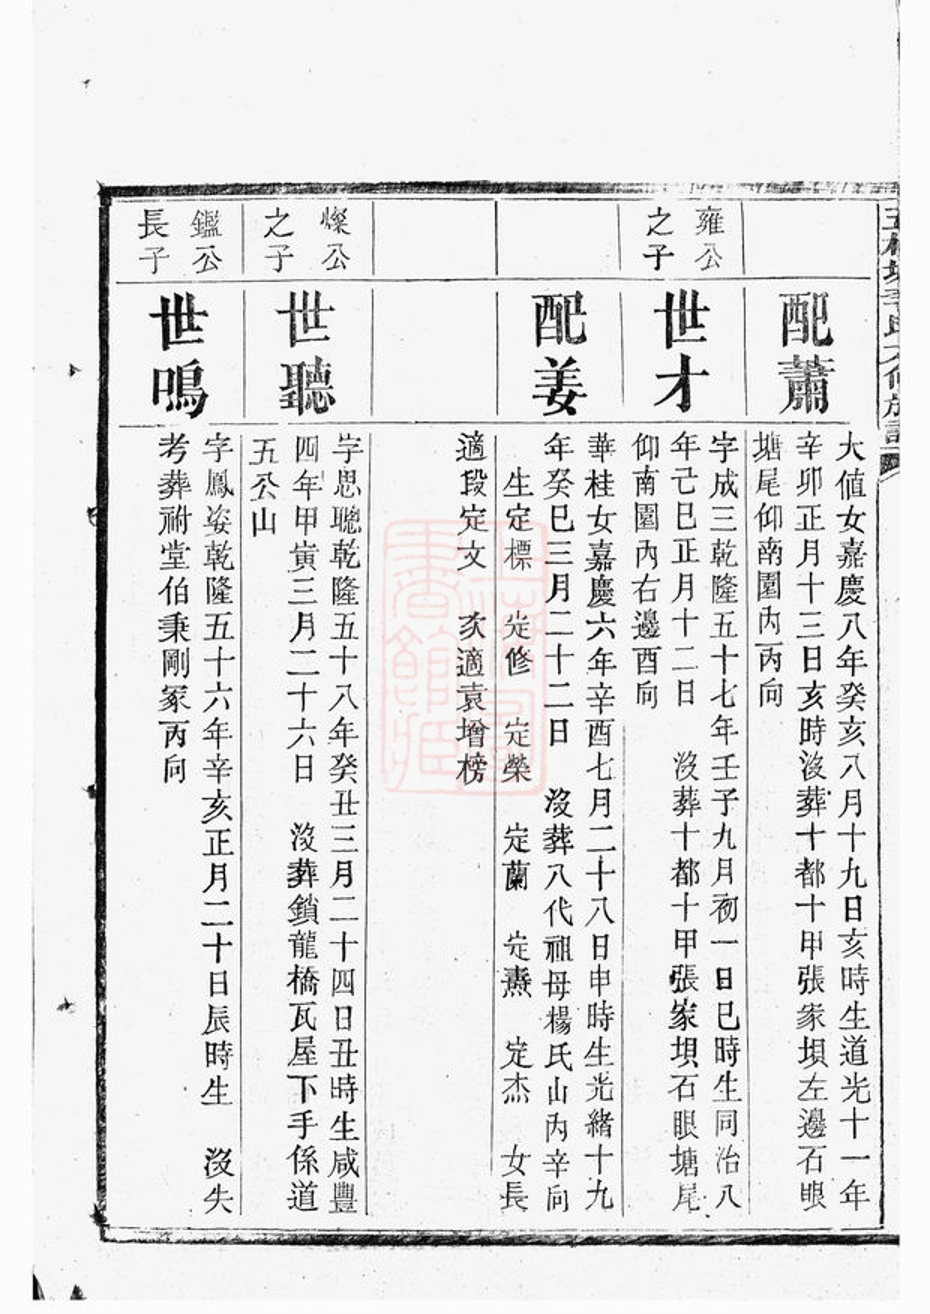 配蕭
大值女嘉慶八年癸亥八月十九日亥時生道光十一年
辛卯正月十三日亥時沒葬十都十甲張家垻左邊石眼
塘尾仰南園內丙向
雍公
之子
世才
字成三乾隆五十七年壬子九月初一日巳時生同治八
年己巳正月十二日 沒葬十都十甲張家垻石眼塘尾
仰南園內右邊酉向
配姜
華桂女嘉慶六年辛酉七月二十八日申時生光緒十九
年癸巳三月二十二日 沒葬八代祖母楊氏山內辛向
生定標 定修 定榮 定蘭 定燾 定杰 女長
適段定文 次適袁增榜
燦公
之子
世聽
字思聰乾隆五十八年癸丑三月二十四日丑時生咸豐
四年甲寅三月二十六日 沒葬鎖龍橋瓦屋下手係道
五公山
鑑公
長子
世鳴
字鳳姿乾隆五十六年辛亥正月二十日辰時生 沒失
考葬祔堂伯秉剛冢丙向